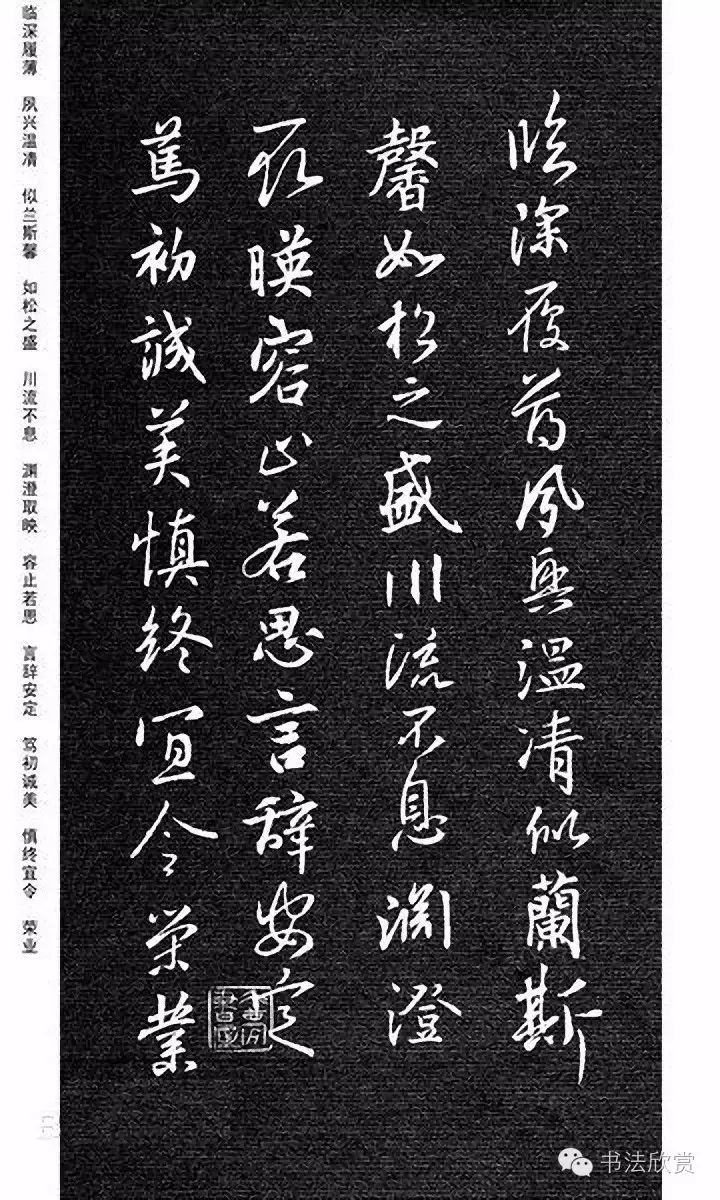 臨深履薄夙興温凊似蘭斯
馨如松之盛川流不息渊澄
取暎容止若思言辞安定
篤初誠美慎终宜令荣業
临深履薄 夙兴温凊 似兰斯馨 如松之盛 川流不息 渊澄取映 容止若思 言辞安定 笃初诚美 慎终宜令 荣业
书法欣赏